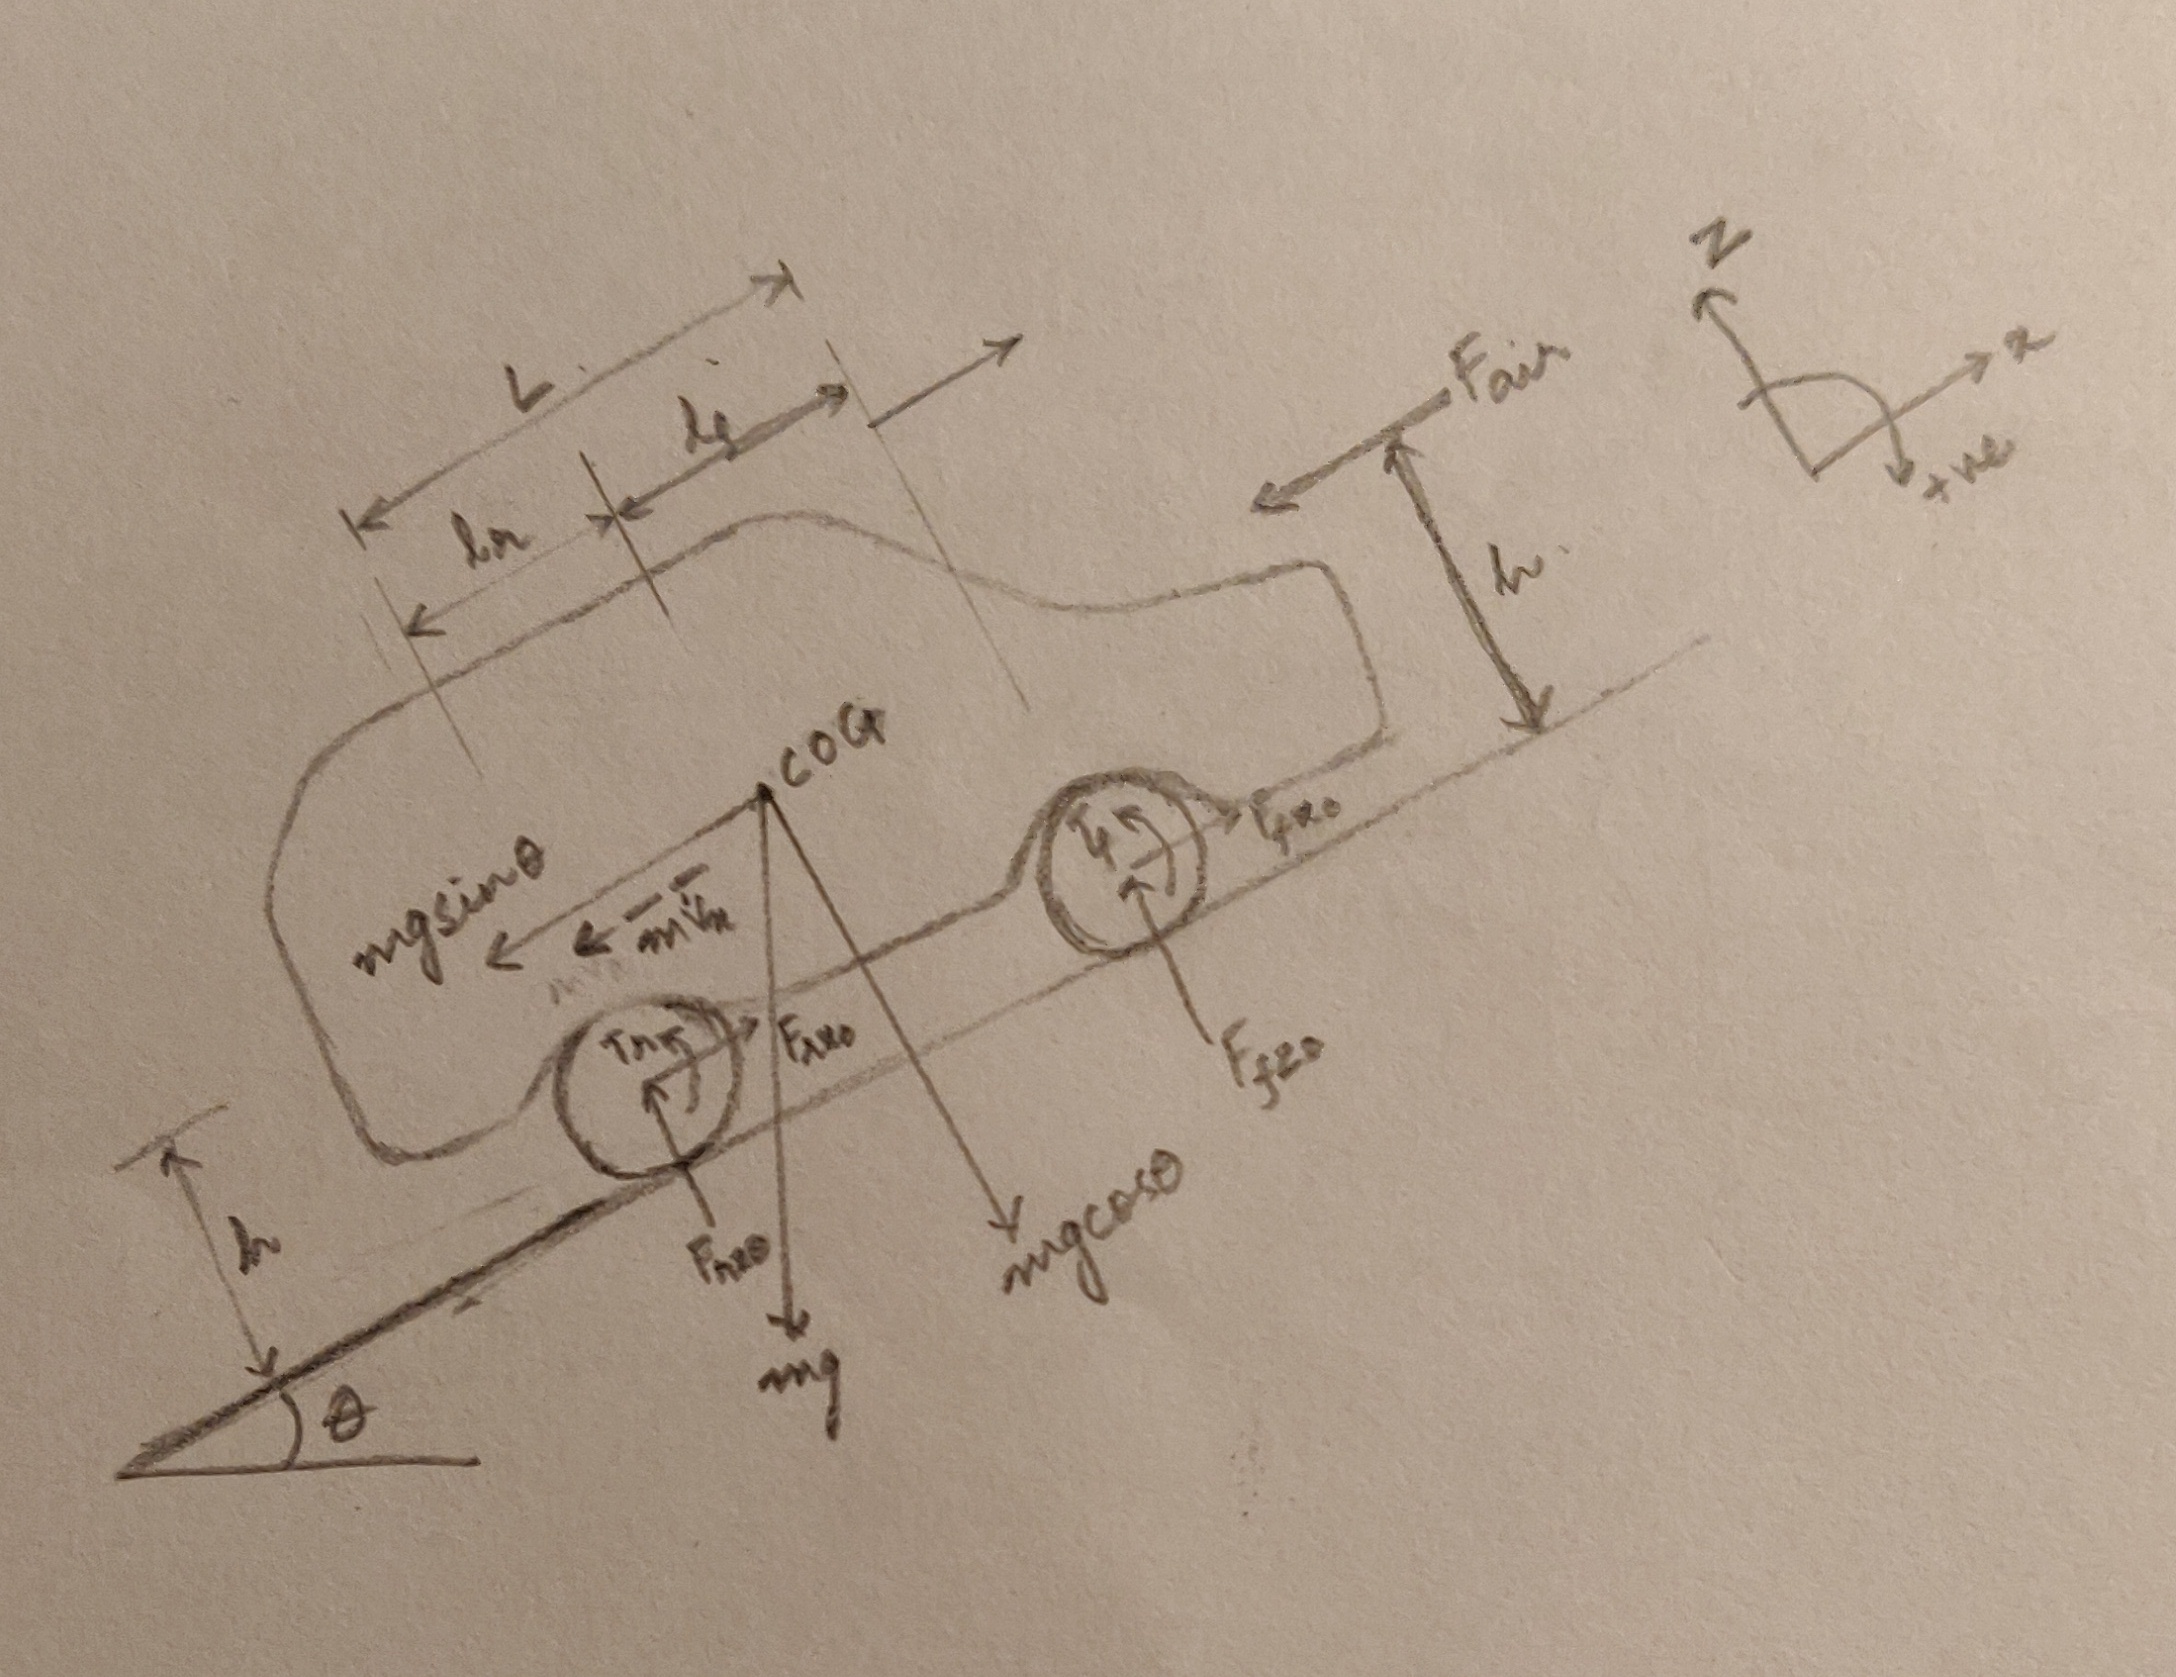 N
x
+ve
L
lf
lr
Fair
h
COG
mgsinθ
mv̇x
Tf
Ffx0
Tr
Frx0
Ffz0
Frz0
mgcosθ
mg
h
θ